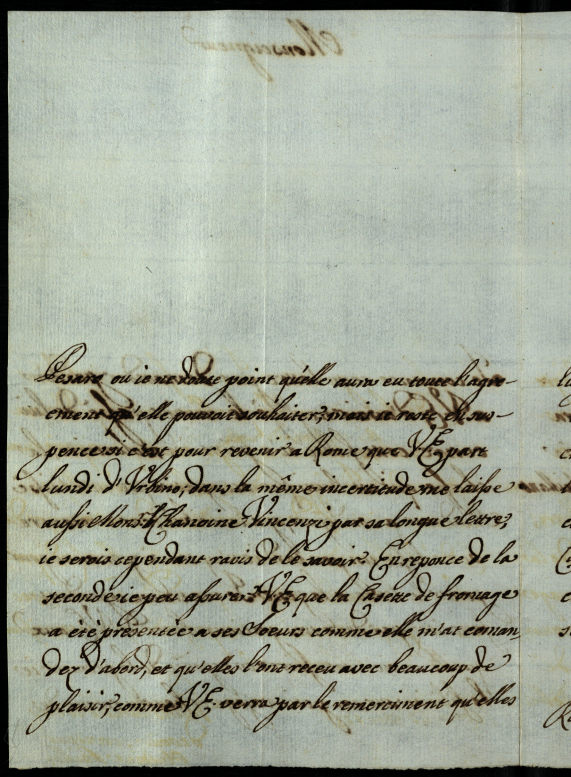 Pesaro ou ie ne doute point qu'elle aura eu toute l'agre-
ement qu'elle pouvoit souhaiter, mais ie reste en sus-
pence si c'est pour revenir a Rome que V.E. part
lundi d'Urbino, dans la même incertitude me laisse
aussi Mons.r Chanoine Vincenzi par sa longue lettre,
ie serois cependant ravis de le savoir. En reponce de la
seconde ie peu assurer V.E. que la Casette de fromage
a été présentée a ses Soeurs comme elle m'at coman
dez d'abord, et qu'elles l'ont receu avec beaucoup de
plaisir, comme V.E. verra par le remerciment qu'elles